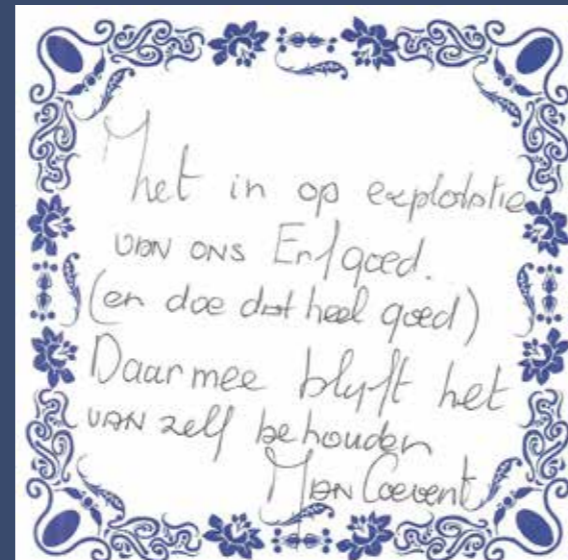 het in op exploitatie
van ons Erfgoed.
(en doe dat heel goed)
Daarmee blyft het
van zelf behouden